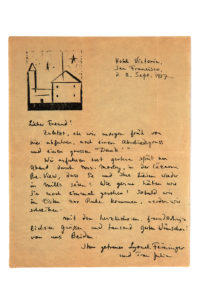 Hotel Victoria,
San Francisco,
d. 2. Sept. 1937.
Liebe Freund!
Zuletzt, ehe wir morgen früh von
hier abfahren, noch einen Abschiedsgruss
und einen grossen "Dank"!
Wir erfuhren erst gestern spät am
Abend durch Mrs. in der
dass Sie und Ihre Lieben wieder
in Mills seien! Wie gerne hätten wir
Sie noch einmal gesehen! Sobald wir
im Osten zur Ruhe kommen, werden wir
schreiben
Mit den herzlichsten, freundschaft-
lichsten Grüßen und tausend gute Wünsche
von uns Beiden
Ihr getreuer Lyonel Feininger
und Frau Julia